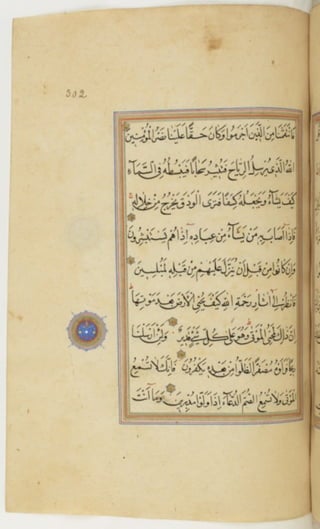 302
فَانتَقَمْنَا مِنَ الَّذِينَ أَجْرَمُوا وَكَانَ حَقًّا عَلَيْنَا نَصْرُ الْمُؤْمِنِينَ
اللهُ الَّذِي يُرْسِلُ الرِّيَاحَ فَتُثِيرُ سَحَابًا فَيَبْسُطُهُ فِي السَّمَاءِ
كَيْفَ يَشَاءُ وَيَجْعَلُهُ كِسَفًا فَتَرَى الْوَدْقَ يَخْرُجُ مِنْ خِلَالِهِ
فَإِذَا أَصَابَ بِهِ مَن يَشَاءُ مِنْ عِبَادِهِ إِذَا هُمْ يَسْتَبْشِرُونَ
وَإِن كَانُوا مِن قَبْلِ أَن يُنَزَّلَ عَلَيْهِم مِّن قَبْلِهِ لَمُبْلِسِينَ
فَانظُرْ إِلَى آثَارِ رَحْمَةِ اللهِ كَيْفَ يُحْيِي الْأَرْضَ بَعْدَ مَوْتِهَا
إِنَّ ذَلِكَ لَمُحْيِي الْمَوْتَى وَهُوَ عَلَى كُلِّ شَيْءٍ قَدِيرٌ وَلَئِنْ أَرْسَلْنَا
رِيحًا فَرَأَوْهُ مُصْفَرًّا لَظَلُّوا مِن بَعْدِهِ يَكْفُرُونَ فَإِنَّكَ لَا تُسْمِعُ
الْمَوْتَى وَلَا تُسْمِعُ الصُّمَّ الدُّعَاءَ إِذَا وَلَّوْا مُدْبِرِينَ وَمَا أَنتَ